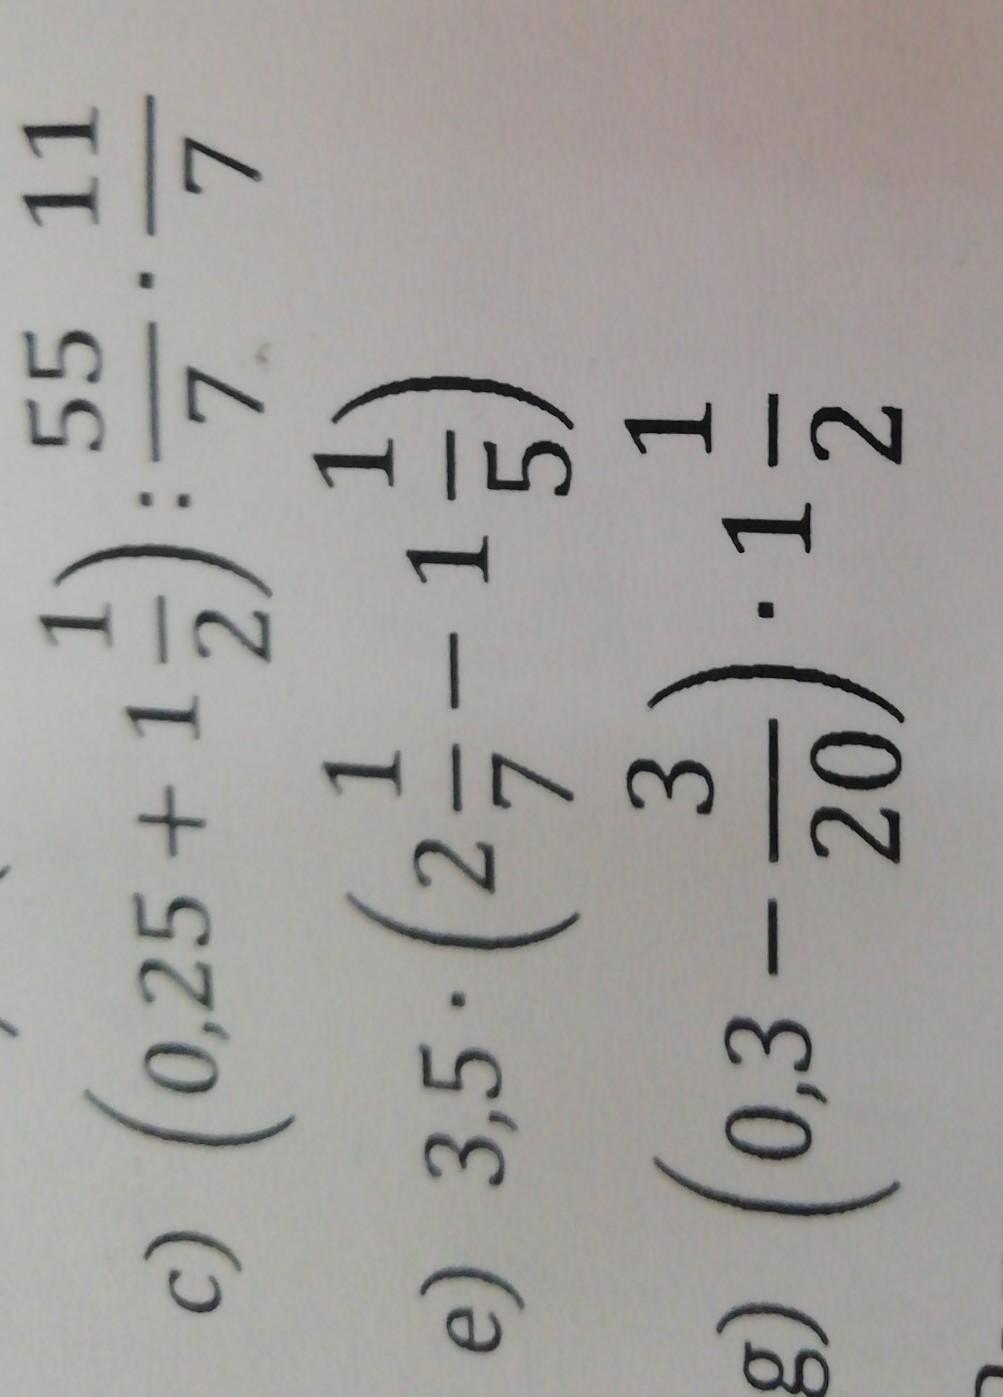 c) (0,25 + 1 1/2) : 55/7 · 11/7
e) 3,5 · (2 1/7 − 1 1/5)
g) (0,3 − 3/20) · 1 1/2